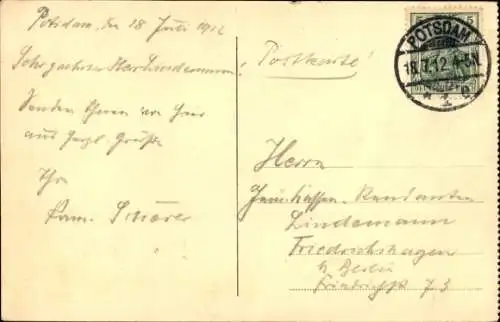 Potsdam, den 18 Juli 1912
Sehr geehrter Herr Lindemann,
Senden Ihnen von hier
aus herzl. Grüße
Ihr
Fam. Scherer
"Postkarte"
5
POTSDAM
18.7.12 4-5N
* 1 e
Herrn
Rendanten
Lindemann
Friedrichshagen
b. Berlin
Friedrichstr 73